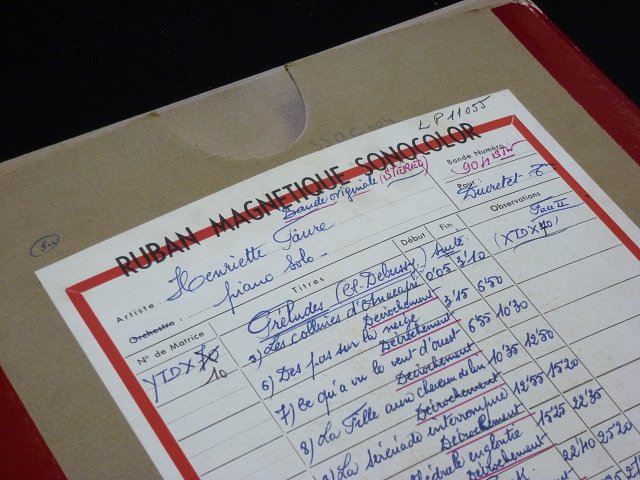 LP 11055
RUBAN MAGNETIQUE SONOCOLOR
Bande originale (STEREO)
Bande Numéro
Pour: Ducretet-
Artiste: Henriette Faure
Orchestre: piano solo -
Observations
Face II
N° de Matrice
Titres
Début
Fin
Préludes (Cl-Debussy) suite
5) Les collines d'Anacapri 0'05 3'10
Décrochement
6) Des pas sur la neige 3'15 6'50
Décrochement
7) Ce qu'a vu le vent d'ouest 6'55 10'30
Décrochement
8) La Fille aux cheveux de lin 10'35 12'50
Décrochement
9) La sérénade interrompue 12'55 15'20
Décrochement
cathédrale engloutie 15'25 22'35
Décrochement
22'40 25'20